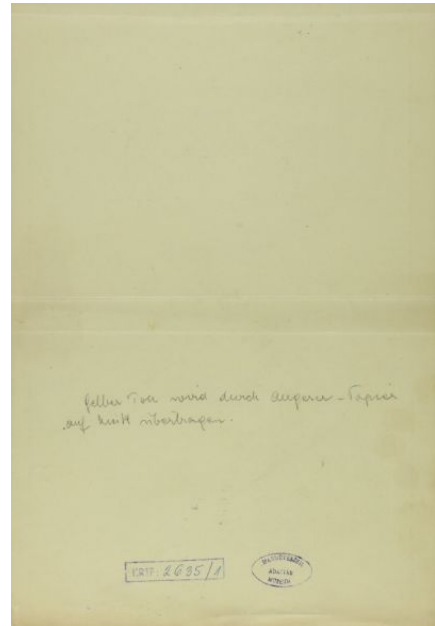 gelber Ton wird durch Angerer-Papier
auf übertragen.
CRTF: 2635/1